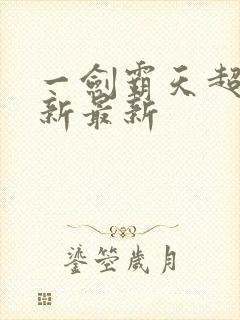 一剑霸天超
新最新
鎏箜歲月